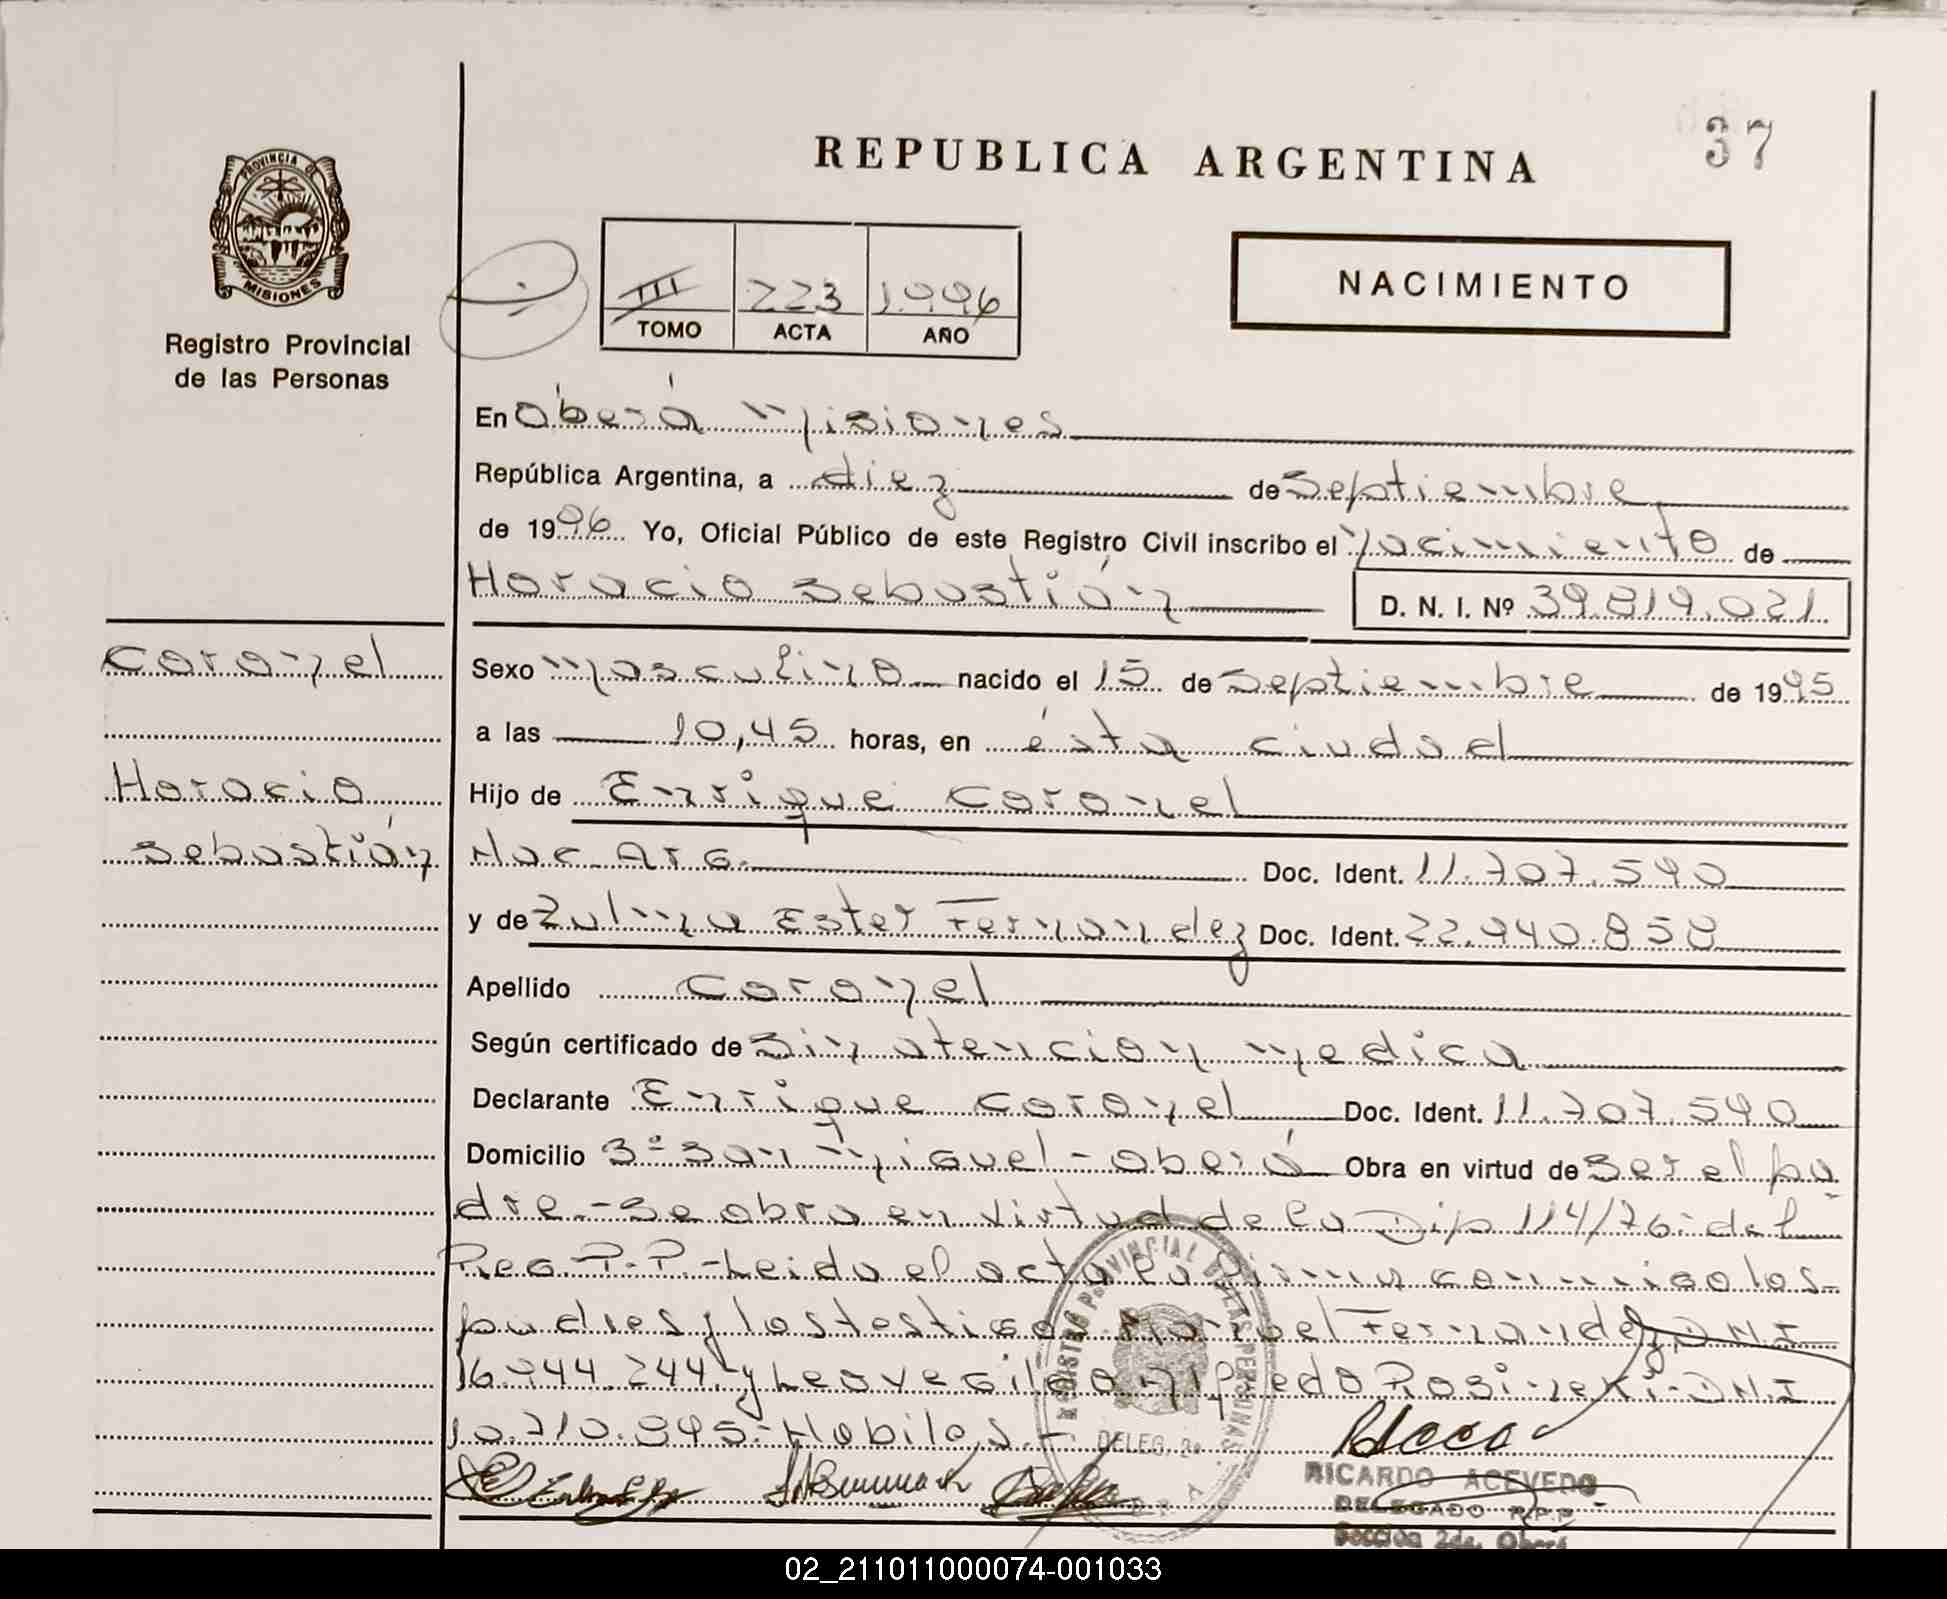 37
REPUBLICA ARGENTINA
PROVINCIA DE
MISIONES
Registro Provincial
de las Personas
III 223 1996
TOMO ACTA AÑO
NACIMIENTO
En Oberá Misiones
República Argentina, a diez de Septiembre
de 1996 Yo, Oficial Público de este Registro Civil inscribo el Nacimiento de
Horacio Sebastián D. N. I. Nº 39.819.021
Coronel
Horacio
Sebastián
Sexo Masculino nacido el 15 de Septiembre de 1995
a las 10,45 horas, en ésta ciudad
Hijo de Enrique Coronel
Nac. Arg. Doc. Ident. 11.707.590
y de Zulma Ester Fernandez Doc. Ident. 22.940.858
Apellido Coronel
Según certificado de Sin atencion medica
Declarante Enrique Coronel Doc. Ident. 11.707.590
Domicilio Bº San Miguel - Oberá Obra en virtud de Ser el pa
dre.- Se obra en virtud de la Dip 114/76 - del
Reg. P. P. - Leida el acta la firma conmigo los
padres y los testigos Manuel Fernandez DNI
16.944.244 y Leovegildo Alfredo DNI
10.710.945 - Habiles.-
REGISTRO PROVINCIAL DE LAS PERSONAS
DELEG. 2a
RICARDO ACEVEDO
DELEGADO R.P.P.
Sección 2da. Oberá
02_211011000074-001033